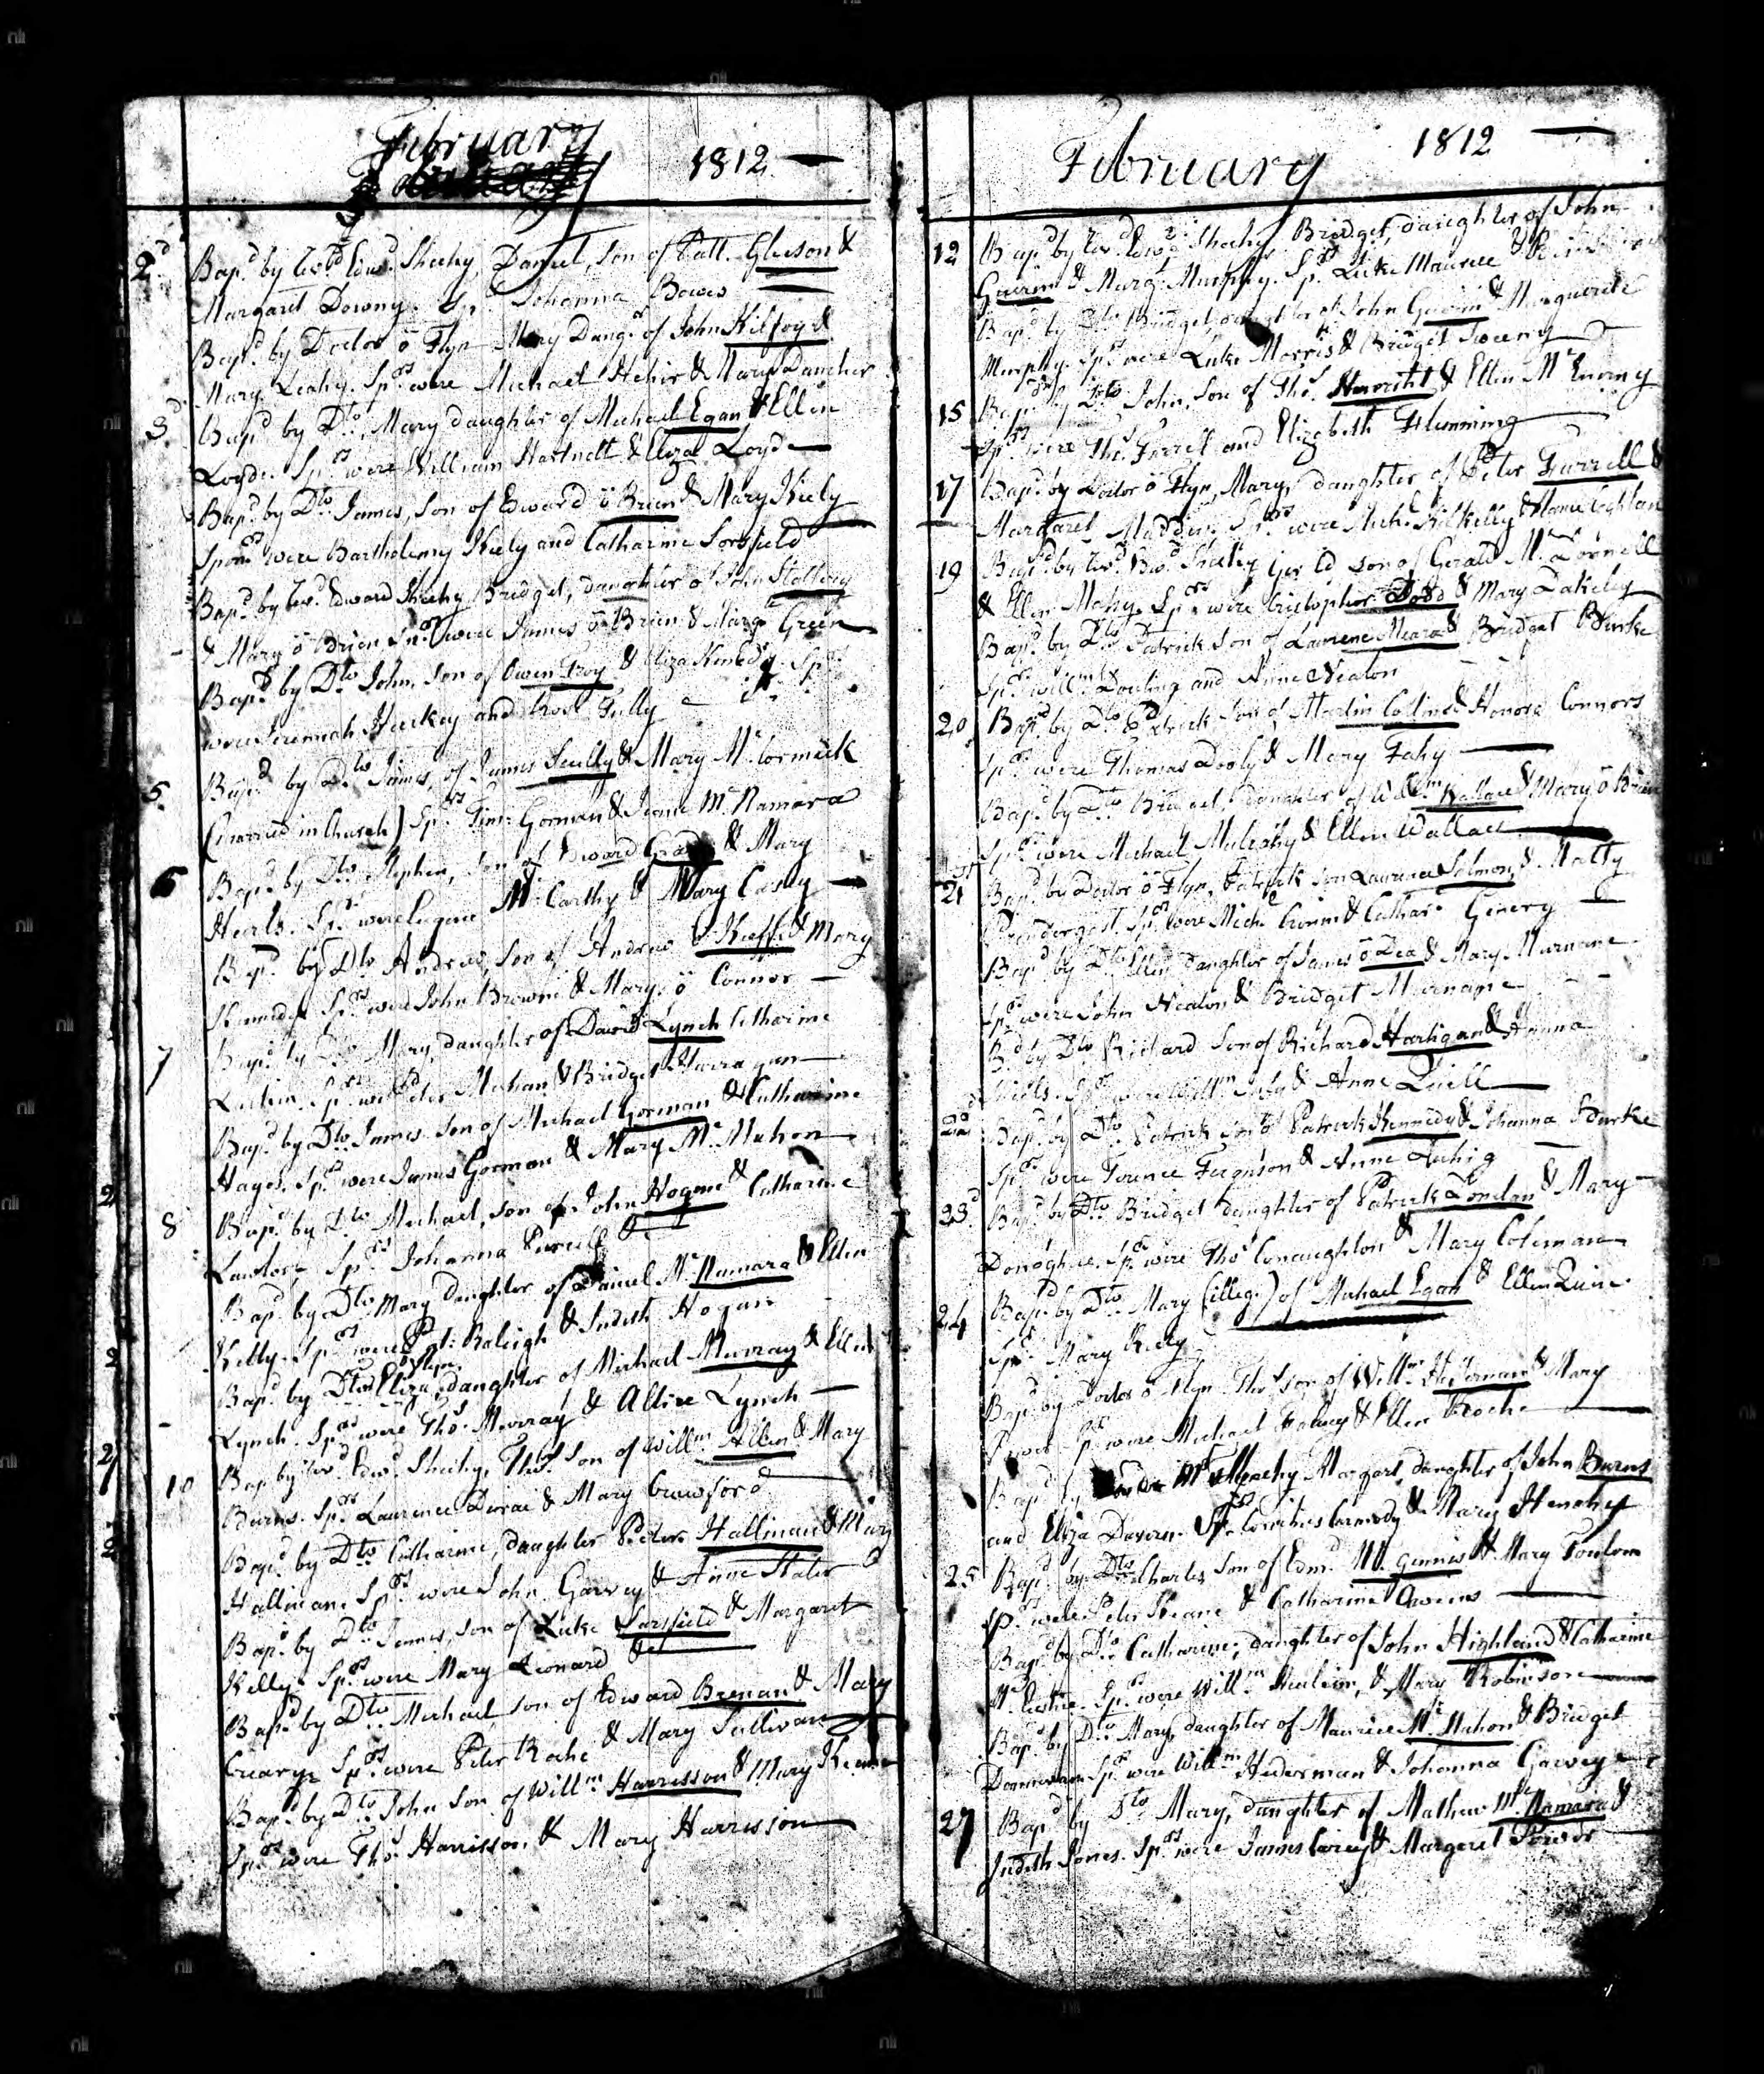 February
1812
2d Bapd. by Revd. Edwd. Sheehy, Daniel, Son of Patt. Gleeson &
Margaret Downy. Spr. Johanna Bowes
Bapd. by Doctor ö Flyn Mary Daugr. of John Kilfoyl &
Mary Leahy. Sprs. were Michael Hehir & Mary Dancher
3d Bapd. by Dto. Mary daughter of Michael Egan & Ellin
Loyde. Sprs. were William Hartnett & Eliza Loyde
Bapd. by Dto. James, Son of Edward ö Brien & Mary Kiely
Sponrs were Bartholemy Kiely and Catharine Sarsfield
Bapd. by Revd. Edward Sheehy Bridget, daughter of John
& Mary ö Brien Sprs. were James ö Brien & Margt. Green
Bapd. by Dto. John, Son of Owen Troy & Eliza Kenedy. Sprs.
were Jeremiah Hurkey and Tully
5. Bapd. by Dto. James, of James Scully & Mary Mc. Cormick
(married in Church) Sprs. Timy. Gorman & Jeanie Mc. Namara
6 Bapd. by Dto. Stephen, Son of Edward & Mary
Sprs. were Eugene Mc. Carthy & Mary Casey
Bapd. by Dto. Andrew, Son of Andrew ö Keeffe & Mary
Kennedy. Sprs. were John Browne & Mary ö Connor
7 Bapd. by Dto. Mary, daughter of David Lynch Catharine
Sprs. were Peter Mehan & Bridget Harragan
Bapd. by Dto. James Son of Michael Gorman & Catharine
Hayes. Sprs. were James Gorman & Mary Mc. Mahon
8 Bapd. by Dto. Michael, Son of John Hogan & Catharine
Lawlor, Sprs. Johanna Purcell &c
Bapd. by Dto. Mary daughter of Daniel Mc. Namara & Ellin
Kelly. Sprs. were Pat: Raleigh & Judith Hogan
Bapd. by Dtor ö Flyn Eliza, daughter of Michael Murray & Ellin
Lynch. Sprs. were Thos. Murray & Allice Lynch
10 Bap by Revd. Edwd. Sheehy, Thos. Son of Willm. Allen & Mary
Burns. Sprs. Laurence & Mary Crawford
Bapd. by Dto. Catharine, daughter Peter Hallinan & Mary
Hallinan. Sprs. were John Garvey & Anne Slater
Bapd. by Dto. James, Son of Luke Sarsfield & Margaret
Kelly. Sprs. were Mary Leonard &c
Bapd. by Dto. Michael, Son of Edward Brenan & Mary
Creary. Sprs. were Peter Roche & Mary Sullivan
Bapd. by Dto. John Son of Willm. Harrisson & Mary
Sprs. were Thos. Harrisson & Mary Harrisson
February
1812
12 Bapd. by Revd. Edwd. Sheehy. Bridget, daughter of John
Guerin & Margt. Murphy. Sprs. Luke Maurice &
Bapd. by Dto. Bridget, daughter of John Guerin & Marguerite
Murphy. Sprs. were Luke Morris & Bridget Sweeny
15 Bapd. by Dto. John, Son of Thos. & Ellin Mc. Enerny
Sprs. were Thos. Farrell and Elizabeth Flemming
17 Bapd. by Doctor ö Flyn, Mary, daughter of Peter Farrell &
Margaret Madden. Sprs. were Michl. Kilkelly & Coghlan
19 Bapd. by Revd. Edwd. Sheehy Gerald son of Gerald Mc. Donnell
& Ellen Mahy. Sprs. were Cristopher Dodd & Mary Dakely
Bapd. by Dto. Patrick Son of Laurence Meara & Bridget Burke
Sprs. Willm. Dowling and Anne Nealon
20 Bapd. by Dto. Patrick Son of Martin Collins & Honora Connors
Sprs. were Thomas Dooly & Mary Fahy
Bapd. by Dto. Bridget, daughter of Willm. Wallace & Mary ö Brien
Sprs. were Michael Mulcahy & Ellen Wallace
21st Bapd. by Doctor ö Flyn, Patrick Son Laurence Solmon, & Matty
Prendergast. Sprs. were Michl. Cronin & Cathar. Ginery
Bapd. by Dto. Ellin daughter of James ö Dea & Mary Murnane
Sprs. were John Nealon & Bridget Murnane
Bd. by Dto. Richard Son of Richard Hartigan & Anna
Sprs. were Willm. & Anne Quill
22d Bapd. by Dto. Patrick Son of Patrick Kennedy & Johanna Burke
Sprs. were Terence Ferguson & Anne Luhig
23d Bapd. by Dto. Bridget daughter of Patrick Condon & Mary
Donoghue. Sprs. were Thos. Conaughton & Mary Coleman
24 Bapd. by Dto. Mary (illeg.) of Michael Egan & Ellen Quin
Spr. Mary Kiely
Bapd. by Doctor ö Flyn Thos. son of Willm. Heffernan & Mary
Power Sprs. were Michael Fahey & Ellen Roche
Bapd. by Margart, daughter of John Burns
and Eliza Davern. Sprs. Cornelius Carmody & Mary Henehy
25 Bapd. by Dto. Charles Son of Edmd. Mc. Guinnis & Mary
Sprs. were Peter Keane & Catharine Owens
Bapd. by Dto. Catharine, daughter of John Highland & Catharine
Sprs. were Willm. & Mary Robinson
Bapd. by Dto. Mary, daughter of Maurice Mc. Mahon & Bridget
Donnivan Sprs. were Willm. Hederman & Johanna Garvey
27 Bapd. by Dto. Mary, daughter of Mathew Mc. Namara &
Judith Jones. Sprs. were James Carey & Margaret Power